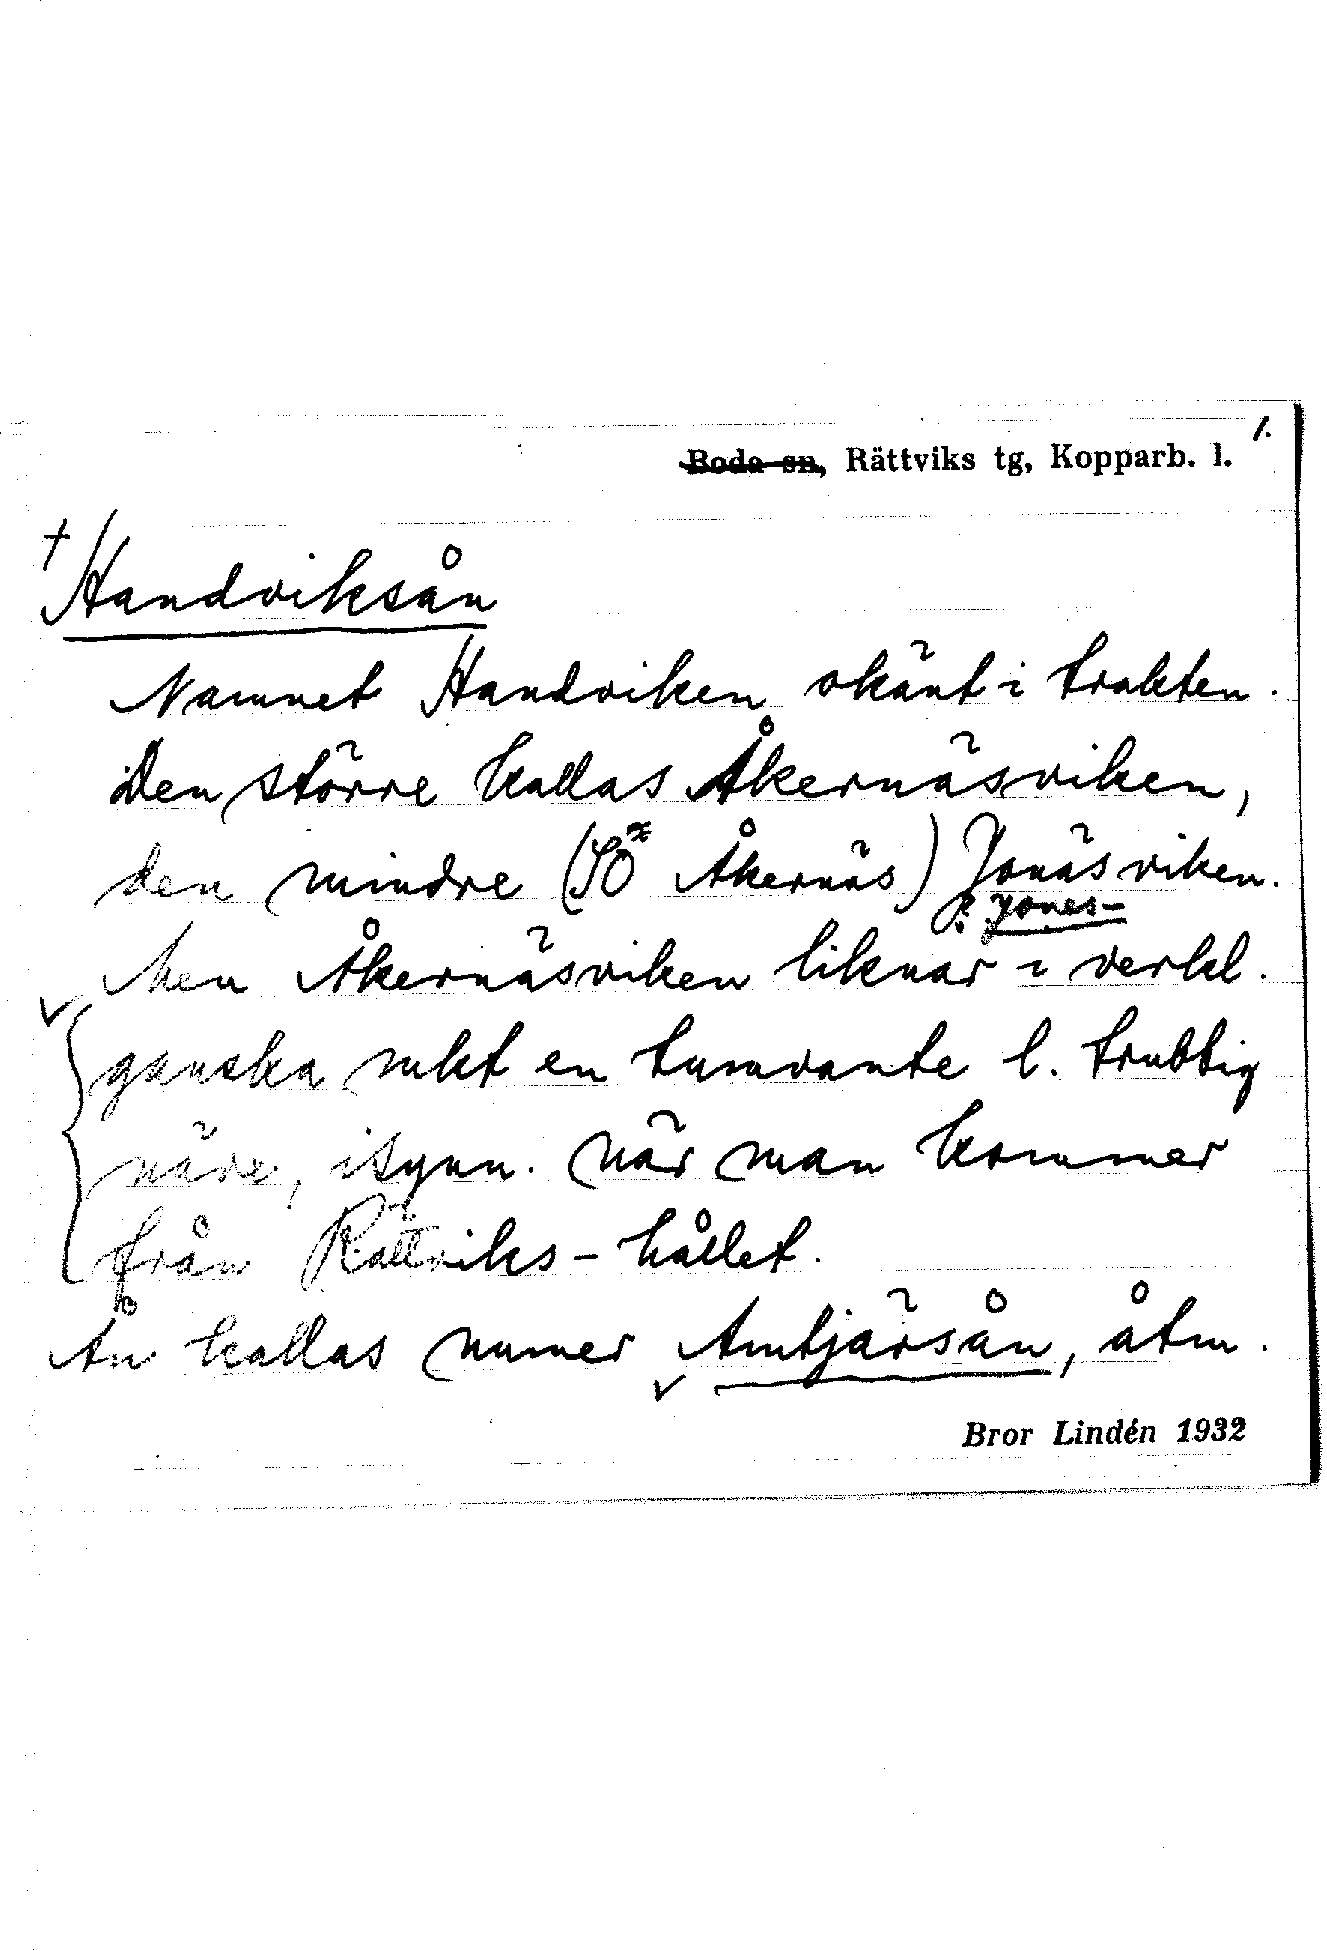 1.
Boda sn, Rättviks tg, Kopparb. l.
† Handviksån
Namnet Handviken okänt i trakten.
Den större kallas Åkernäsviken,
den mindre (SÖ Åkernäs) Jonäsviken.
Jones-
Men Åkernäsviken liknar i verkl.
ganska mkt en tumvante l. trubbig
näve, isynn. när man kommer
från Rättviks-hållet.
Ån kallas numer Amtjärsån, åtm.
Bror Lindén 1932